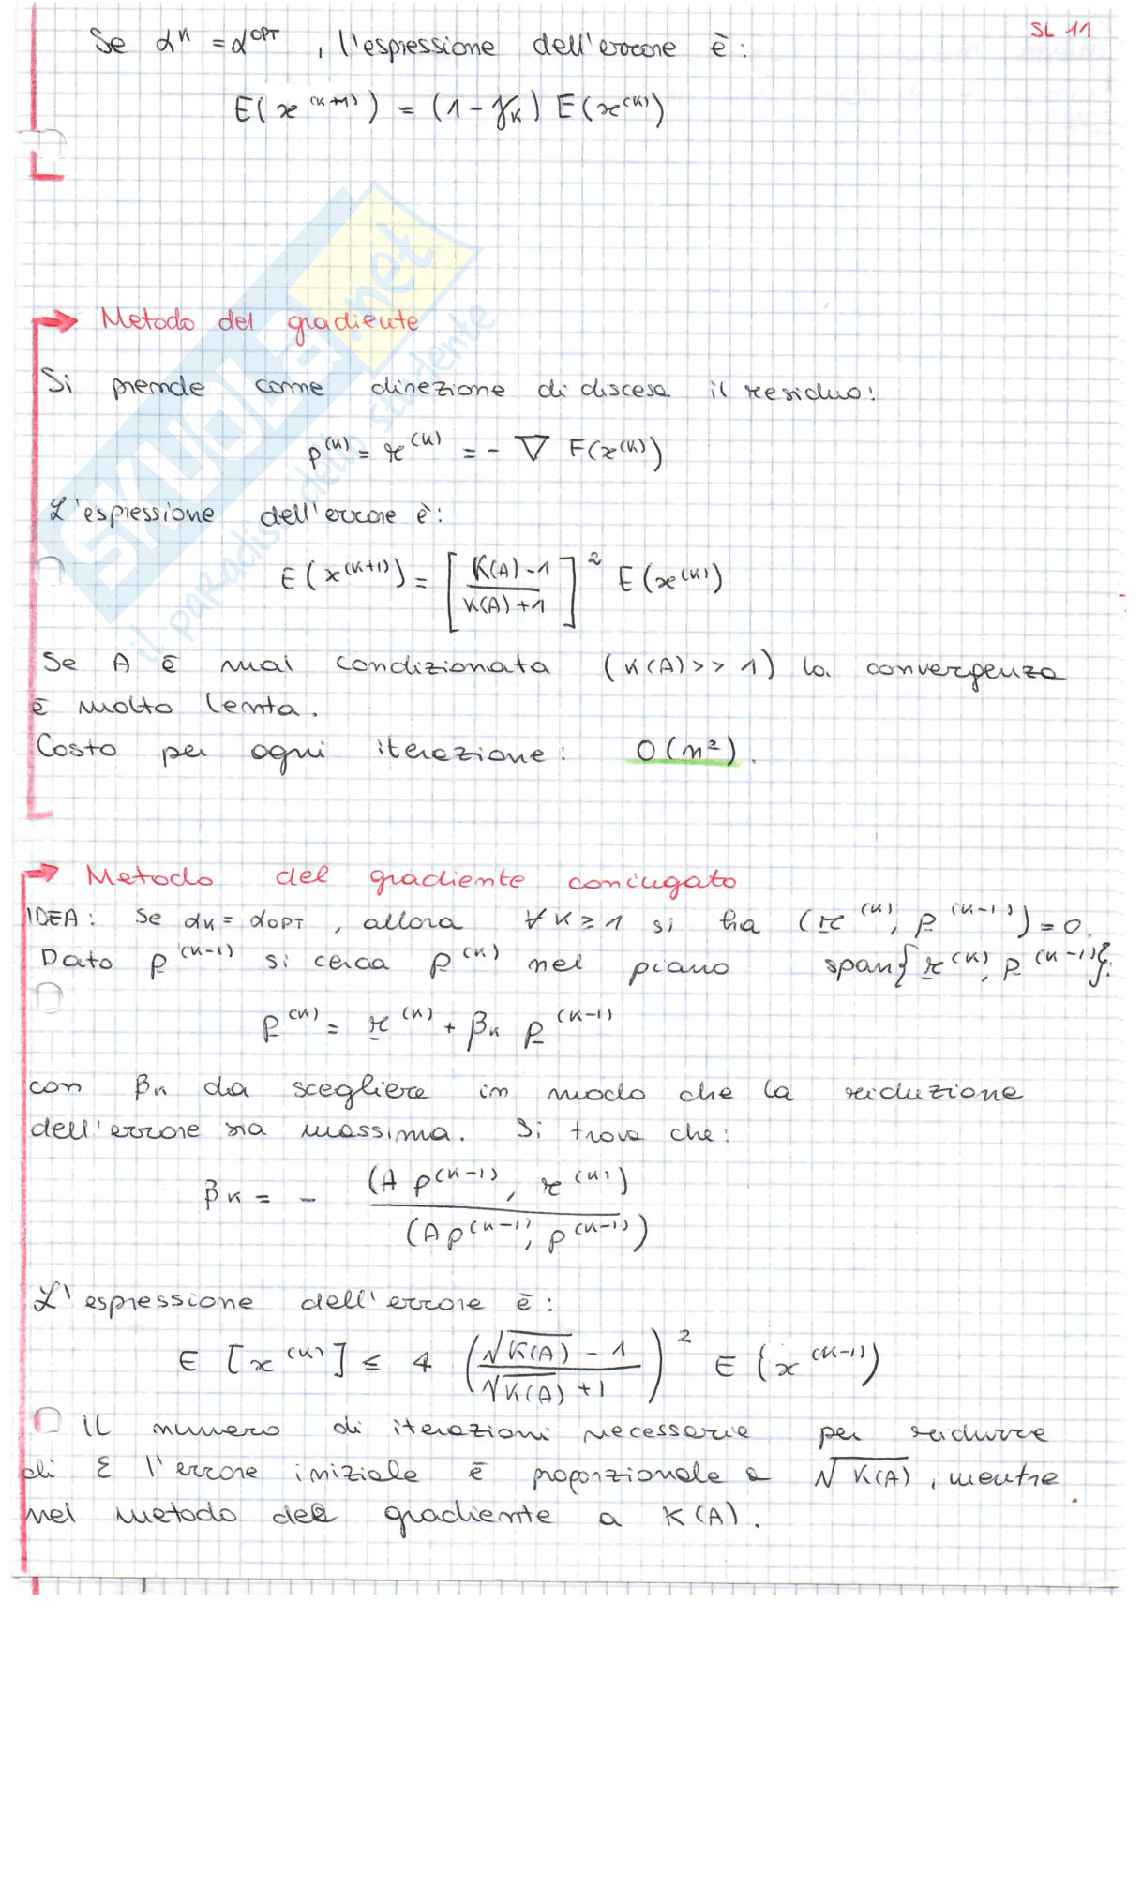 SL 11
Se α^k = α^OPT , l'espressione dell'errore è:
E(x^(k+1)) = (1 - γ_k) E(x^(k))
→ Metodo del gradiente
Si prende come direzione di discesa il residuo:
p^(k) = r^(k) = - ∇ F(x^(k))
L'espressione dell'errore è:
E(x^(k+1)) = [ (K(A) - 1) / (K(A) + 1) ]^2 E(x^(k))
Se A è mal condizionata (K(A) >> 1) la convergenza
è molto lenta.
Costo per ogni iterazione: O(n^2).
→ Metodo del gradiente coniugato
IDEA: Se α_k = α_OPT , allora ∀ k ≥ 1 si ha (r^(k), p^(k-1)) = 0.
Dato p^(k-1) si cerca p^(k) nel piano span{r^(k), p^(k-1)}:
p^(k) = r^(k) + β_k p^(k-1)
con β_k da scegliere in modo che la riduzione
dell'errore sia massima. Si trova che:
β_k = - (A p^(k-1), r^(k)) / (A p^(k-1), p^(k-1))
L'espressione dell'errore è:
E [x^(k)] ≤ 4 ( (√K(A) - 1) / (√K(A) + 1) )^2 E (x^(k-1))
IL numero di iterazioni necessarie per ridurre
di ε l'errore iniziale è proporzionale a √K(A) , mentre
nel metodo del gradiente a K(A).
SKUOLA.net
il paradiso dello studente